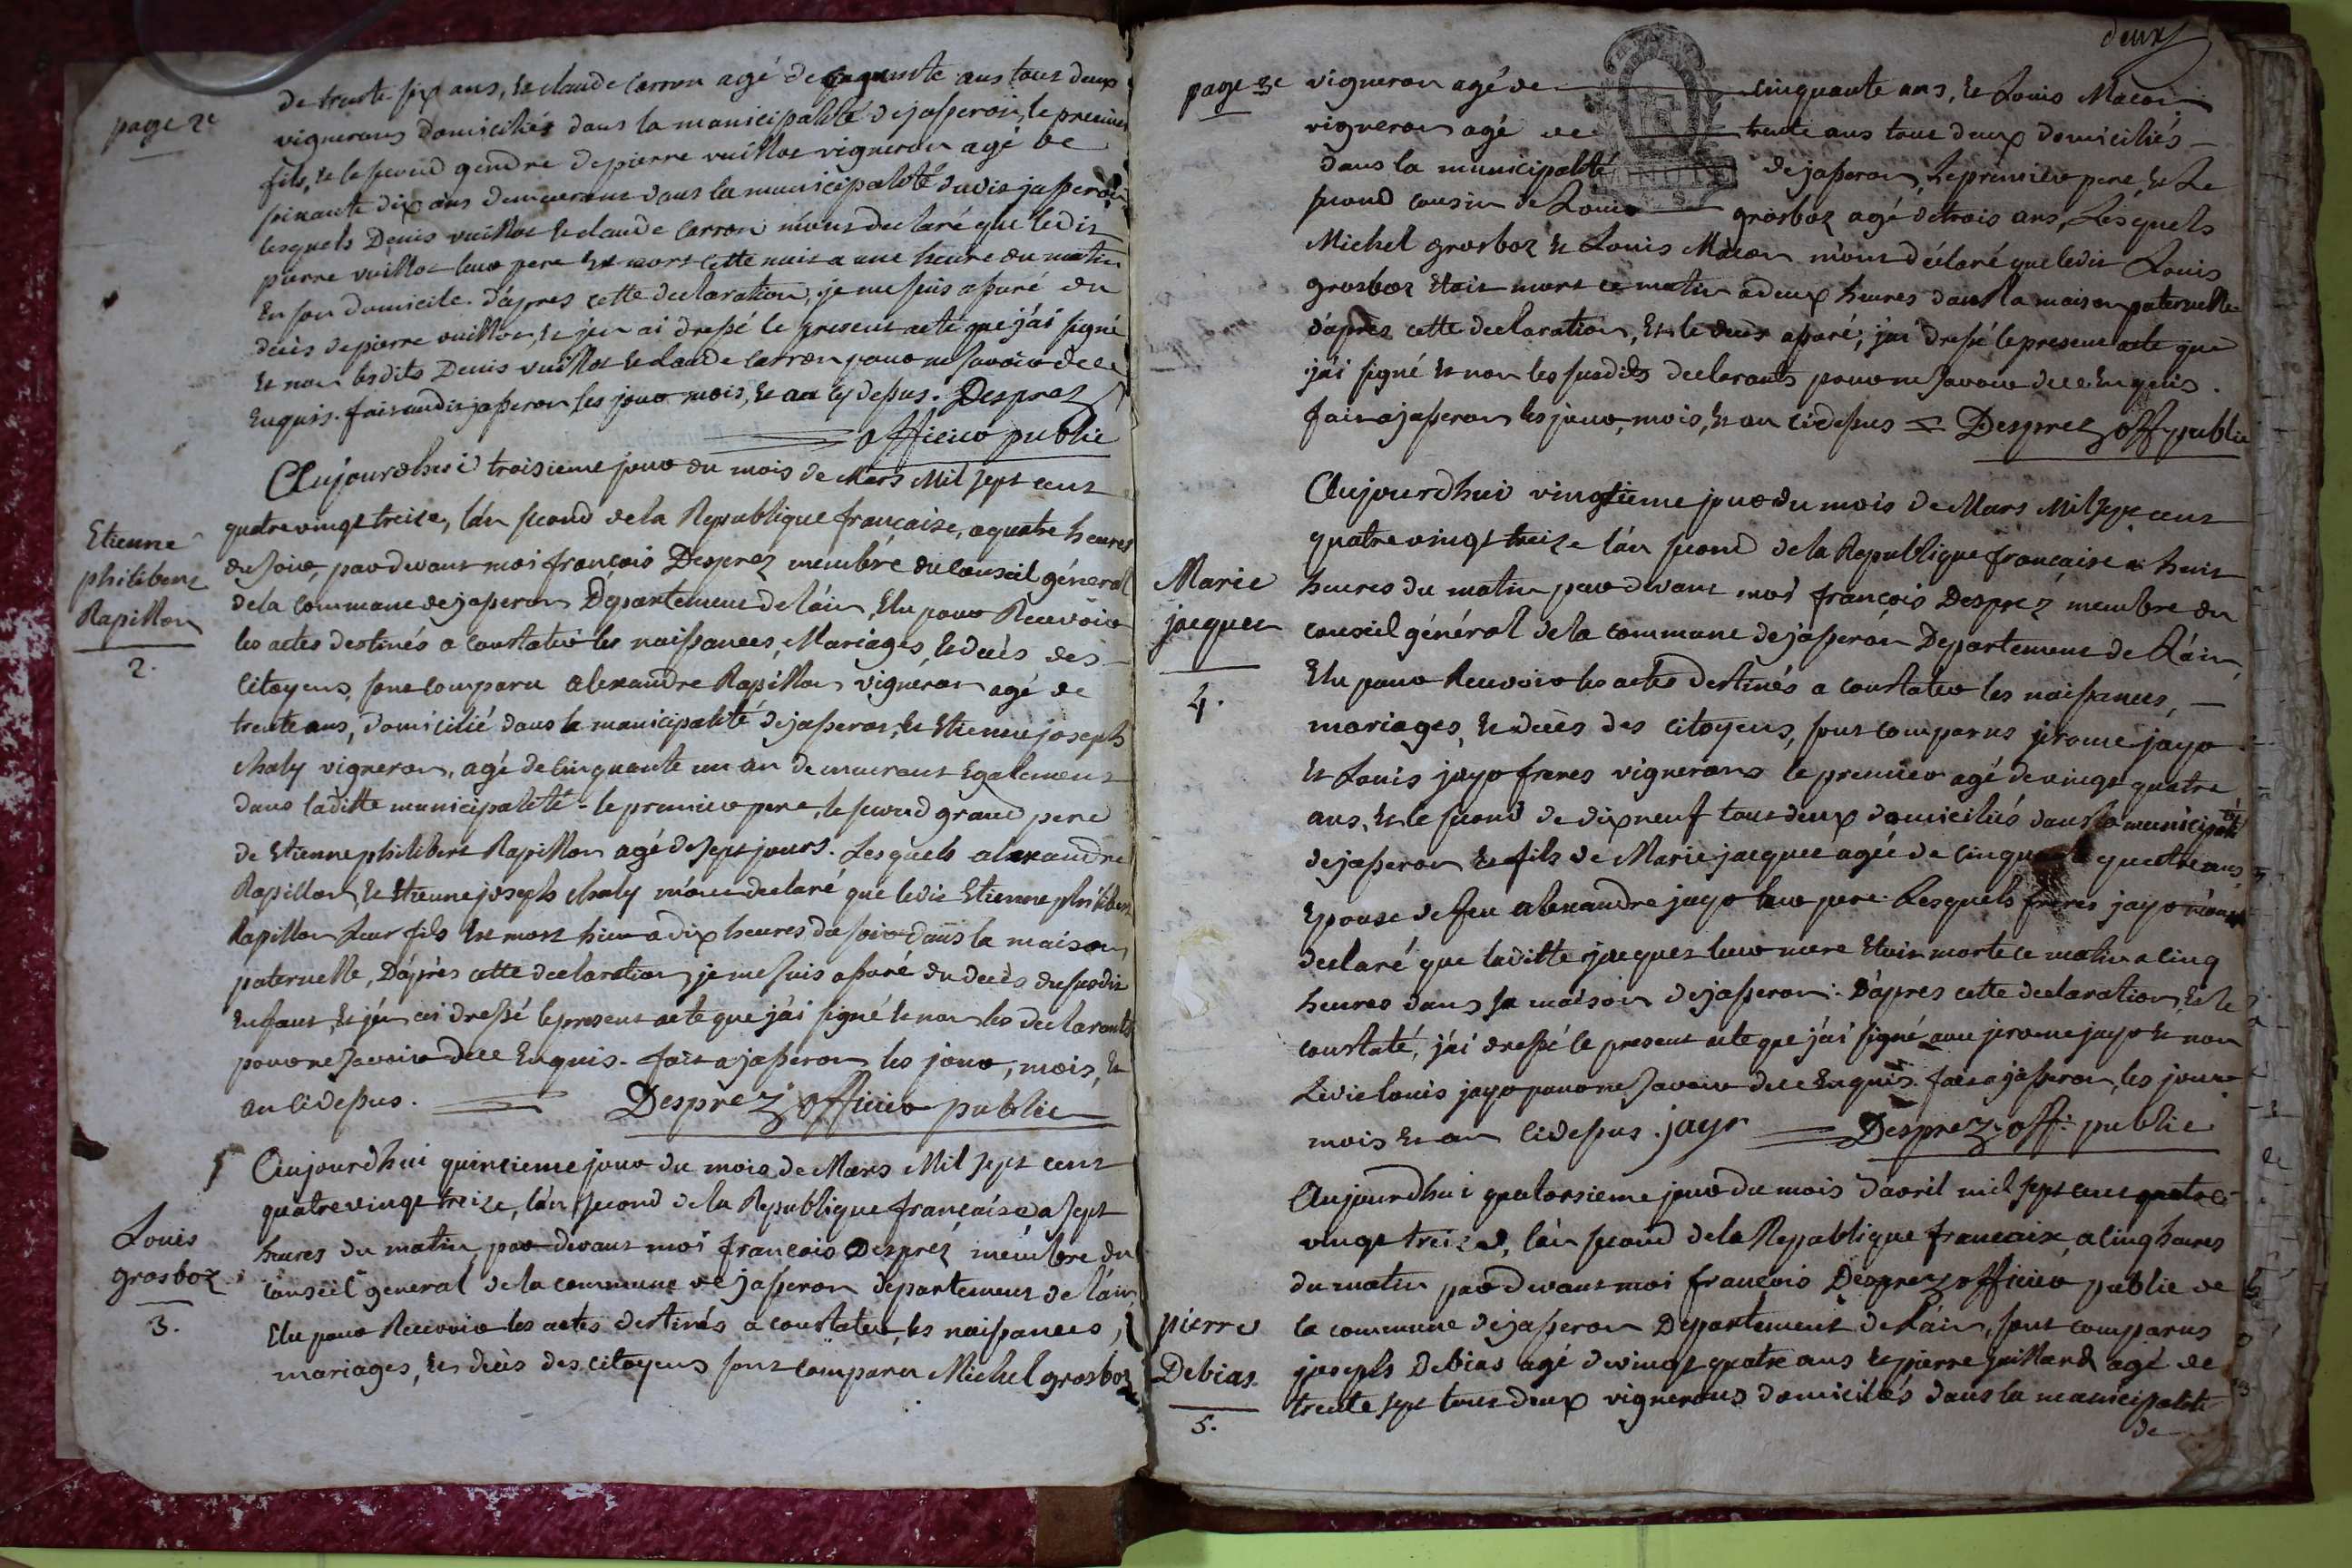 page 2e
de trente six ans, et claude Carron agé de cinquante ans tous deux
vignerons domiciliés dans la municipalité de jasseron, le premier
fils, et le second gendre de pierre vuillot vigneron agé de
soixante dix ans demeurant dans la municipalité dudit jasseron
lesquels Denis vuillot et claude Carron m'ont declaré que ledit
pierre vuillot leur pere est mort cette nuit a une heure du matin
en son domicile. d'apres cette declaration, je me suis assuré du
decès de pierre vuillot, et j'en ai dressé le present acte que j'ai signé
et non lesdits Denis vuillot et claude Carron pour ne savoir de ce
enquis. fait audit jasseron les jour mois, et an cy dessus. Desprez
officier public
Aujourdhui troisieme jour du mois de Mars Mil sept cent
quatrevingt treize, l'an second de la Republique française, a quatre heures
du soir, par devant moi françois Desprez membre du Conseil général
de la Commune de jasseron Département de l'ain, Elu pour Recevoir
les actes destinés a Constater les naissances, Mariages, et decès des
Citoyens, sont comparu alexandre Rapillon vigneron agé de
trente ans, domicilié dans la municipalité de jasseron, et Etienne joseph
chaly vigneron, agé de Cinquante un an demeurant Egalement
dans laditte municipalité - le premier pere, le second grand pere
de Etienne philibert Rapillon agé de sept jours. Lesquels alexandre
Rapillon, et Etienne joseph chaly m'ont declaré que ledit Etienne philibert
Rapillon leur fils est mort hier a dix heures du soir dans la maison
paternelle, D'après cette declaration, je me suis assuré du decès du susdit
enfant, et j'en ai dressé le present acte que j'ai signé et non les declarants
pour ne savoir de ce Enquis. fait a jasseron, les jour, mois, et
an cidessus. Desprez officier public
Etienne
philibert
Rapillon
2.
Aujourdhui quinzieme jour du mois de Mars Mil sept cent
quatrevingt treize, l'an second de la Republique française a sept
heures du matin, par devant moi françois Desprez membre du
Conseil general de la commune de jasseron departement de l'ain,
Elu pour Recevoir les actes destinés a constater les naissances,
mariages, et decès des citoyens sont comparu Michel grosboz
Louis
grosboz
3.
deux
page 3e
vigneron agé de cinquante ans, et Louis Macon
vigneron agé de trente ans tous deux domiciliés
dans la municipalité de jasseron, le premier pere, et le
second cousin de Louis grosboz agé de trois ans, Lesquels
Michel grosboz et Louis Macon m'ont déclaré que ledit Louis
grosboz etait mort ce matin a deux heures dans la maison paternelle
d'après cette declaration, et le decès assuré, j'ai dressé le present acte que
j'ai signé et non les susdits declarants pour ne savoir de ce Enquis.
fait a jasseron les jour, mois, et an cidessus = Desprez off. public
Aujourdhui vingtieme jour du mois de Mars Mil sept cent
quatre vingt treize l'an second de la Republique française a huit
heures du matin par devant moi françois Desprez membre du
conseil général de la commune de jasseron Departement de l'ain,
Elu pour Recevoir les actes destinés a constater les naissances,
mariages, et decès des citoyens, sont comparus jerome jayr
et Louis jayr freres vignerons le premier agé de vingt quatre
ans, et le second de dix neuf tous deux domiciliés dans la municipalité
de jasseron et fils de Marie jacquet agée de cinquante quatre ans,
Epouse de feu alexandre jayr leur pere. Lesquels freres jayr m'ont
declaré que laditte jacquet leur mere etoit morte ce matin a cinq
heures dans sa maison de jasseron. D'apres cette declaration, et le
constaté, j'ai dressé le present acte que j'ai signé avec jerome jayr et non
Ledit louis jayr pour ne savoir de ce Enquis. fait a jasseron, les jour
mois et an cidessus. jayr Desprez off. public
Marie
jacquet
4.
Aujourdhui quatorsieme jour du mois d'avril mil sept cent quatre
vingt treize, l'an second de la Republique francaise, a cinq heures
du matin par devant moi françois Desprez officier public de
la commune de jasseron Departement de l'ain, sont comparus
joseph Debias agé de vingt quatre ans et pierre guillard agé de
trente sept tous deux vignerons domiciliés dans la municipalité
de
pierre
Debias
5.